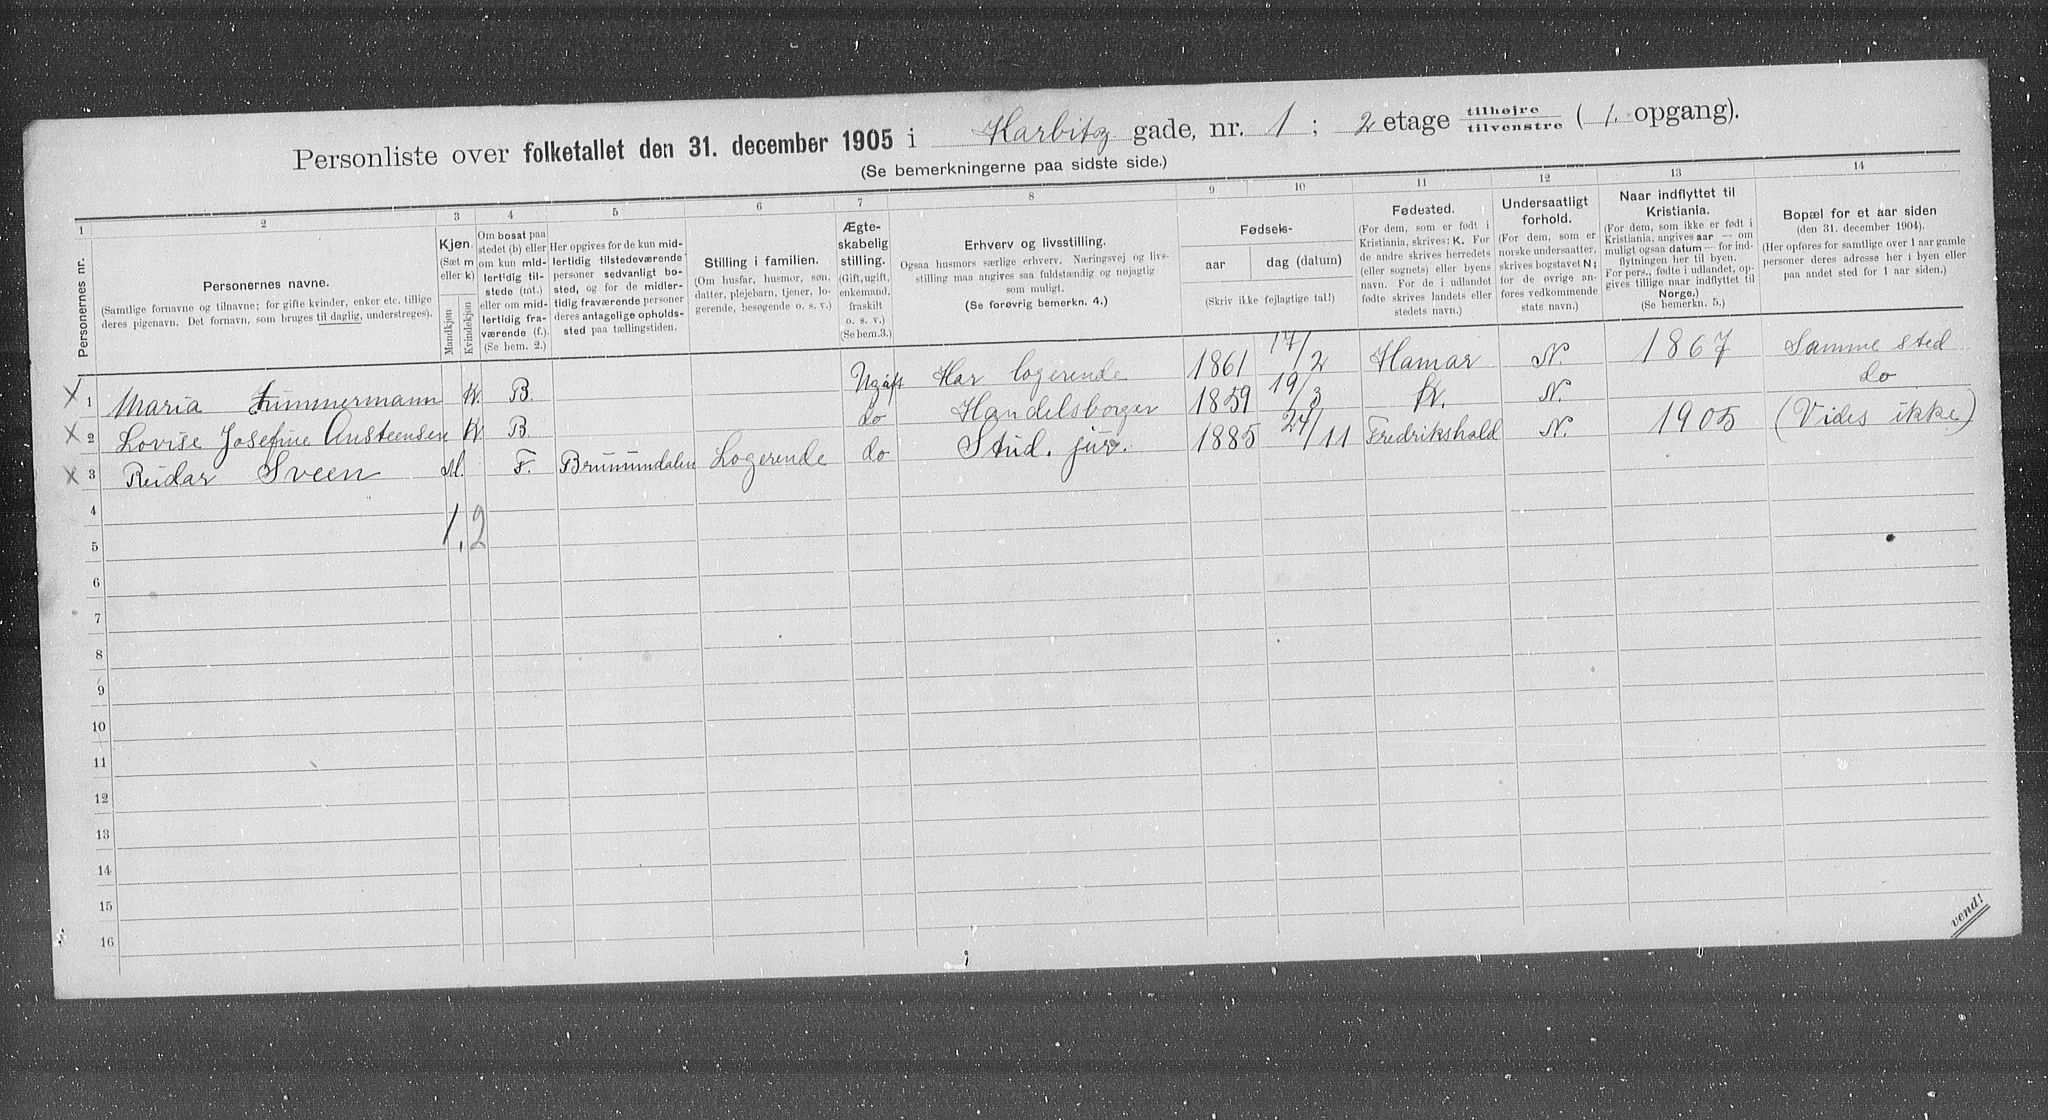 Personliste over folketallet den 31. december 1905 i Karbitz gade, nr. 1 ; 2 etage tilhøjre tilvenstre ( 1. opgang).
(Se bemerkningerne paa sidste side.)
1 2 3 4 5 6 7 8 9 10 11 12 13 14
Personernes nr.
Personernes navne.
(Samtlige fornavne og tilnavne; for gifte kvinder, enker etc. tillige
deres pigenavn. Det fornavn, som bruges til daglig, understreges).
Kjøn.
(Sæt m
eller k)
Mandkjøn
Kvindekjøn
Om bosat paa
stedet (b) eller
om kun mid-
lertidig til-
stede (mt.)
eller om mid-
lertidig fra-
værende (f.)
(Se bem. 2.)
Her opgives for de kun mid-
lertidig tilstedeværende
personer sedvanligt bo-
sted, og for de midler-
tidig fraværende personer
deres antagelige opholds-
sted paa tællingstiden.
Stilling i familien.
(Om husfar, husmor, søn,
datter, plejebarn, tjener, lo-
gerende, besøgende o. s. v.)
Ægte-
skabelig
stilling.
(Gift, ugift,
enkemand,
fraskilt
o. s. v.)
(Se bem.3.)
Erhverv og livsstilling.
Ogsaa husmors særlige erhverv. Næringsvej og livs-
stilling maa angives saa fuldstændig og nøjagtig
som muligt.
(Se forøvrig bemerkn. 4.)
Fødsels-
aar
dag (datum)
(Skriv ikke fejlagtige tal!)
Fødested.
(For dem, som er født i
Kristiania, skrives: K. For
de andre skrives herredets
(eller sognets) eller byens
navn. For de i udlandet
fødte skrives landets eller
stedets navn.)
Undersaatligt
forhold.
(For dem, som er
norske undersaatter,
skrives bogstavet N;
for de øvrige an-
føres vedkommende
stats navn.)
Naar indflyttet til
Kristiania.
(For dem, som ikke er født i
Kristiania, angives aar — om
muligt ogsaa datum — for ind-
flytningen her til byen.
For pers., fødte i udlandet, op-
gives tillige naar indflyttet til
Norge.)
(Se bemerkn. 5.)
Bopæl for et aar siden
(den 31. december 1904).
(Her opføres for samtlige over 1 aar gamle
personer deres adresse her i byen eller
paa andet sted for 1 aar siden.)
X 1 Maria Timmermann K. B. Ugift Har logerende 1861 17/2 Hamar N. 1867 Samme sted
X 2 Lovise Josefine Austeensen K B do Handelsborger 1859 19/3 K. N. do
X 3 Reidar Sveen M. F. Brumunddalen Logerende do Stud. jur. 1885 24/11 Fredrikshald N. 1905 (Vides ikke)
4
1, 2
5
6
7
8
9
10
11
12
13
14
15
16
vend!